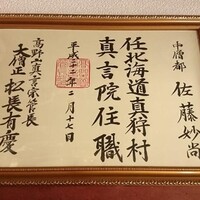 中僧都 佐藤妙尚
任北海道真狩村
真言院住職
平成二十二年二月十七日
高野山真言宗管長
大僧正 松長有慶